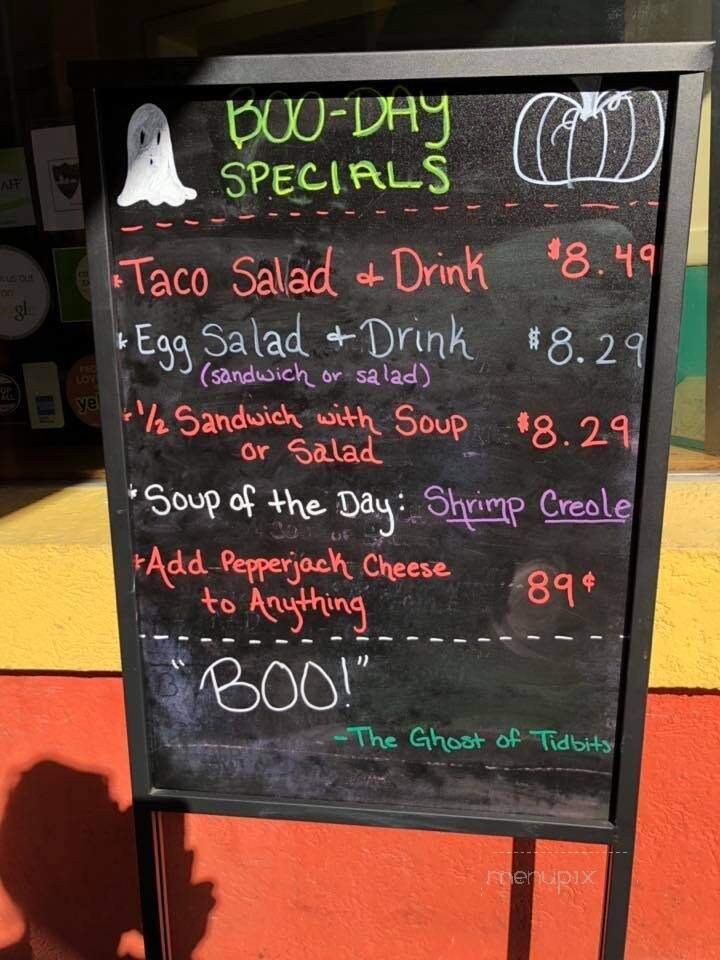 BOO-DAY
SPECIALS
*Taco Salad & Drink $8.49
*Egg Salad & Drink $8.29
(sandwich or salad)
*1/2 Sandwich with Soup $8.29
or Salad
*Soup of the Day: Shrimp Creole
*Add Pepperjack Cheese 89¢
to Anything
"BOO!"
-The Ghost of Tidbits
menupix